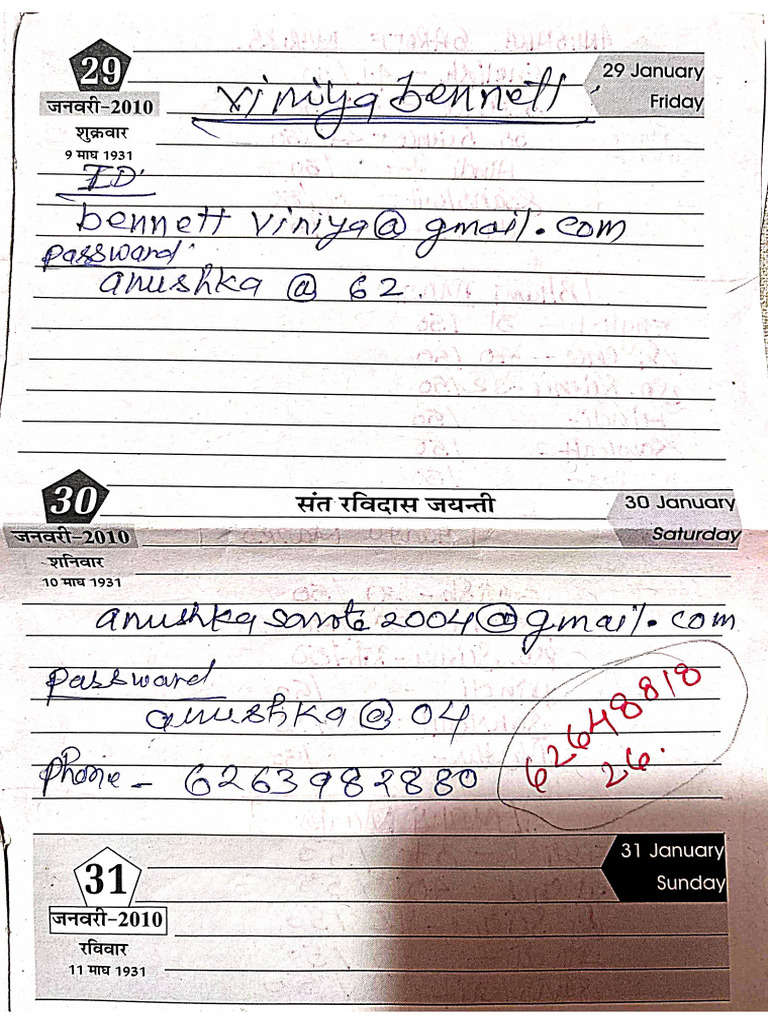 29
जनवरी-2010
शुक्रवार
9 माघ 1931
29 January
Friday
Viniya bennett
ID
bennett viniya@gmail.com
password
anushka @ 62
30
जनवरी-2010
शनिवार
10 माघ 1931
संत रविदास जयन्ती
30 January
Saturday
2004@gmail.com
password
anushka@04
Phone - 6263982880
62648818
26.
31
जनवरी-2010
रविवार
11 माघ 1931
31 January
Sunday